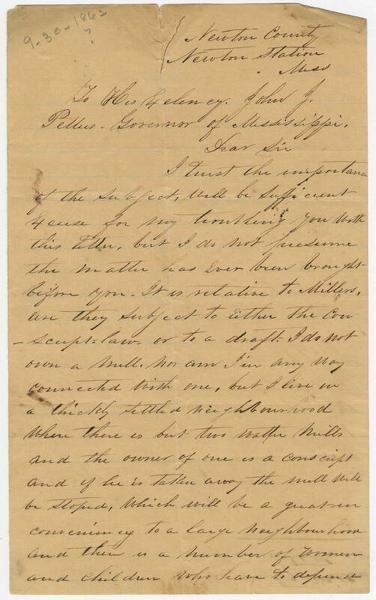 9-30-1862
?
Newton County
Newton Station
Miss
To His Exlency. John J.
Pettus. Governor of Mississippi.
Dear Sir
I trust the importance
of the Subject, Will be Sufficient
Excuse for my troubling you With
this letter, but I do not presume
the matter has Ever been brought
before you. It is relative to Millers,
are they Subject to Either the Con
-Script law or to a draft. I do not
own a Mill. nor am I in any Way
connected With one, but I live in
a thickly Settled neighbourhood
Where there is but two Mills
and the owner of one is a conscript
and if he is taken away the mill Will
be Stoped, Which will be a
to a large neighbourhood
and there is a number of Women
and children who have to depend